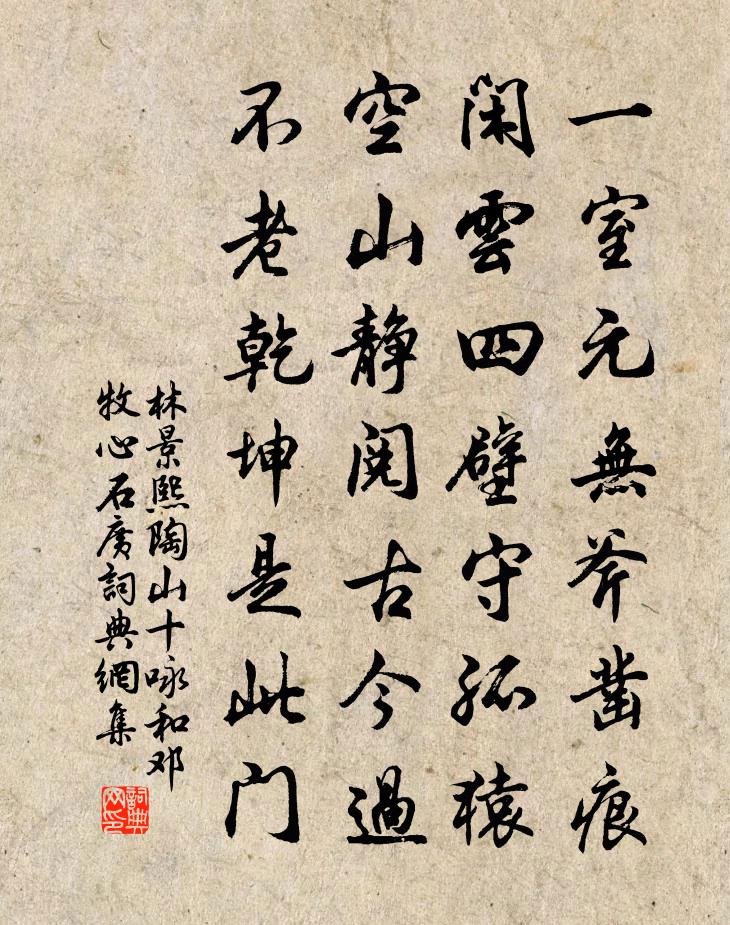 一室元無斧鑿痕
閑雲四壁守孤猿
空山静閱古今過
不老乾坤是此门
林景熙陶山十咏和邓
牧心石廣詞典網集
詞典网印